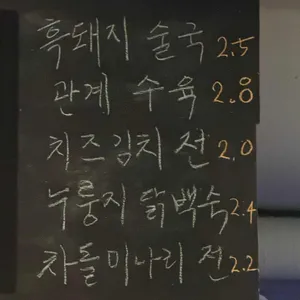 흑돼지 술국 2.5
관계 수육 2.8
치즈김치 전 2.0
누룽지 닭백숙 2.4
차돌미나리 전 2.2